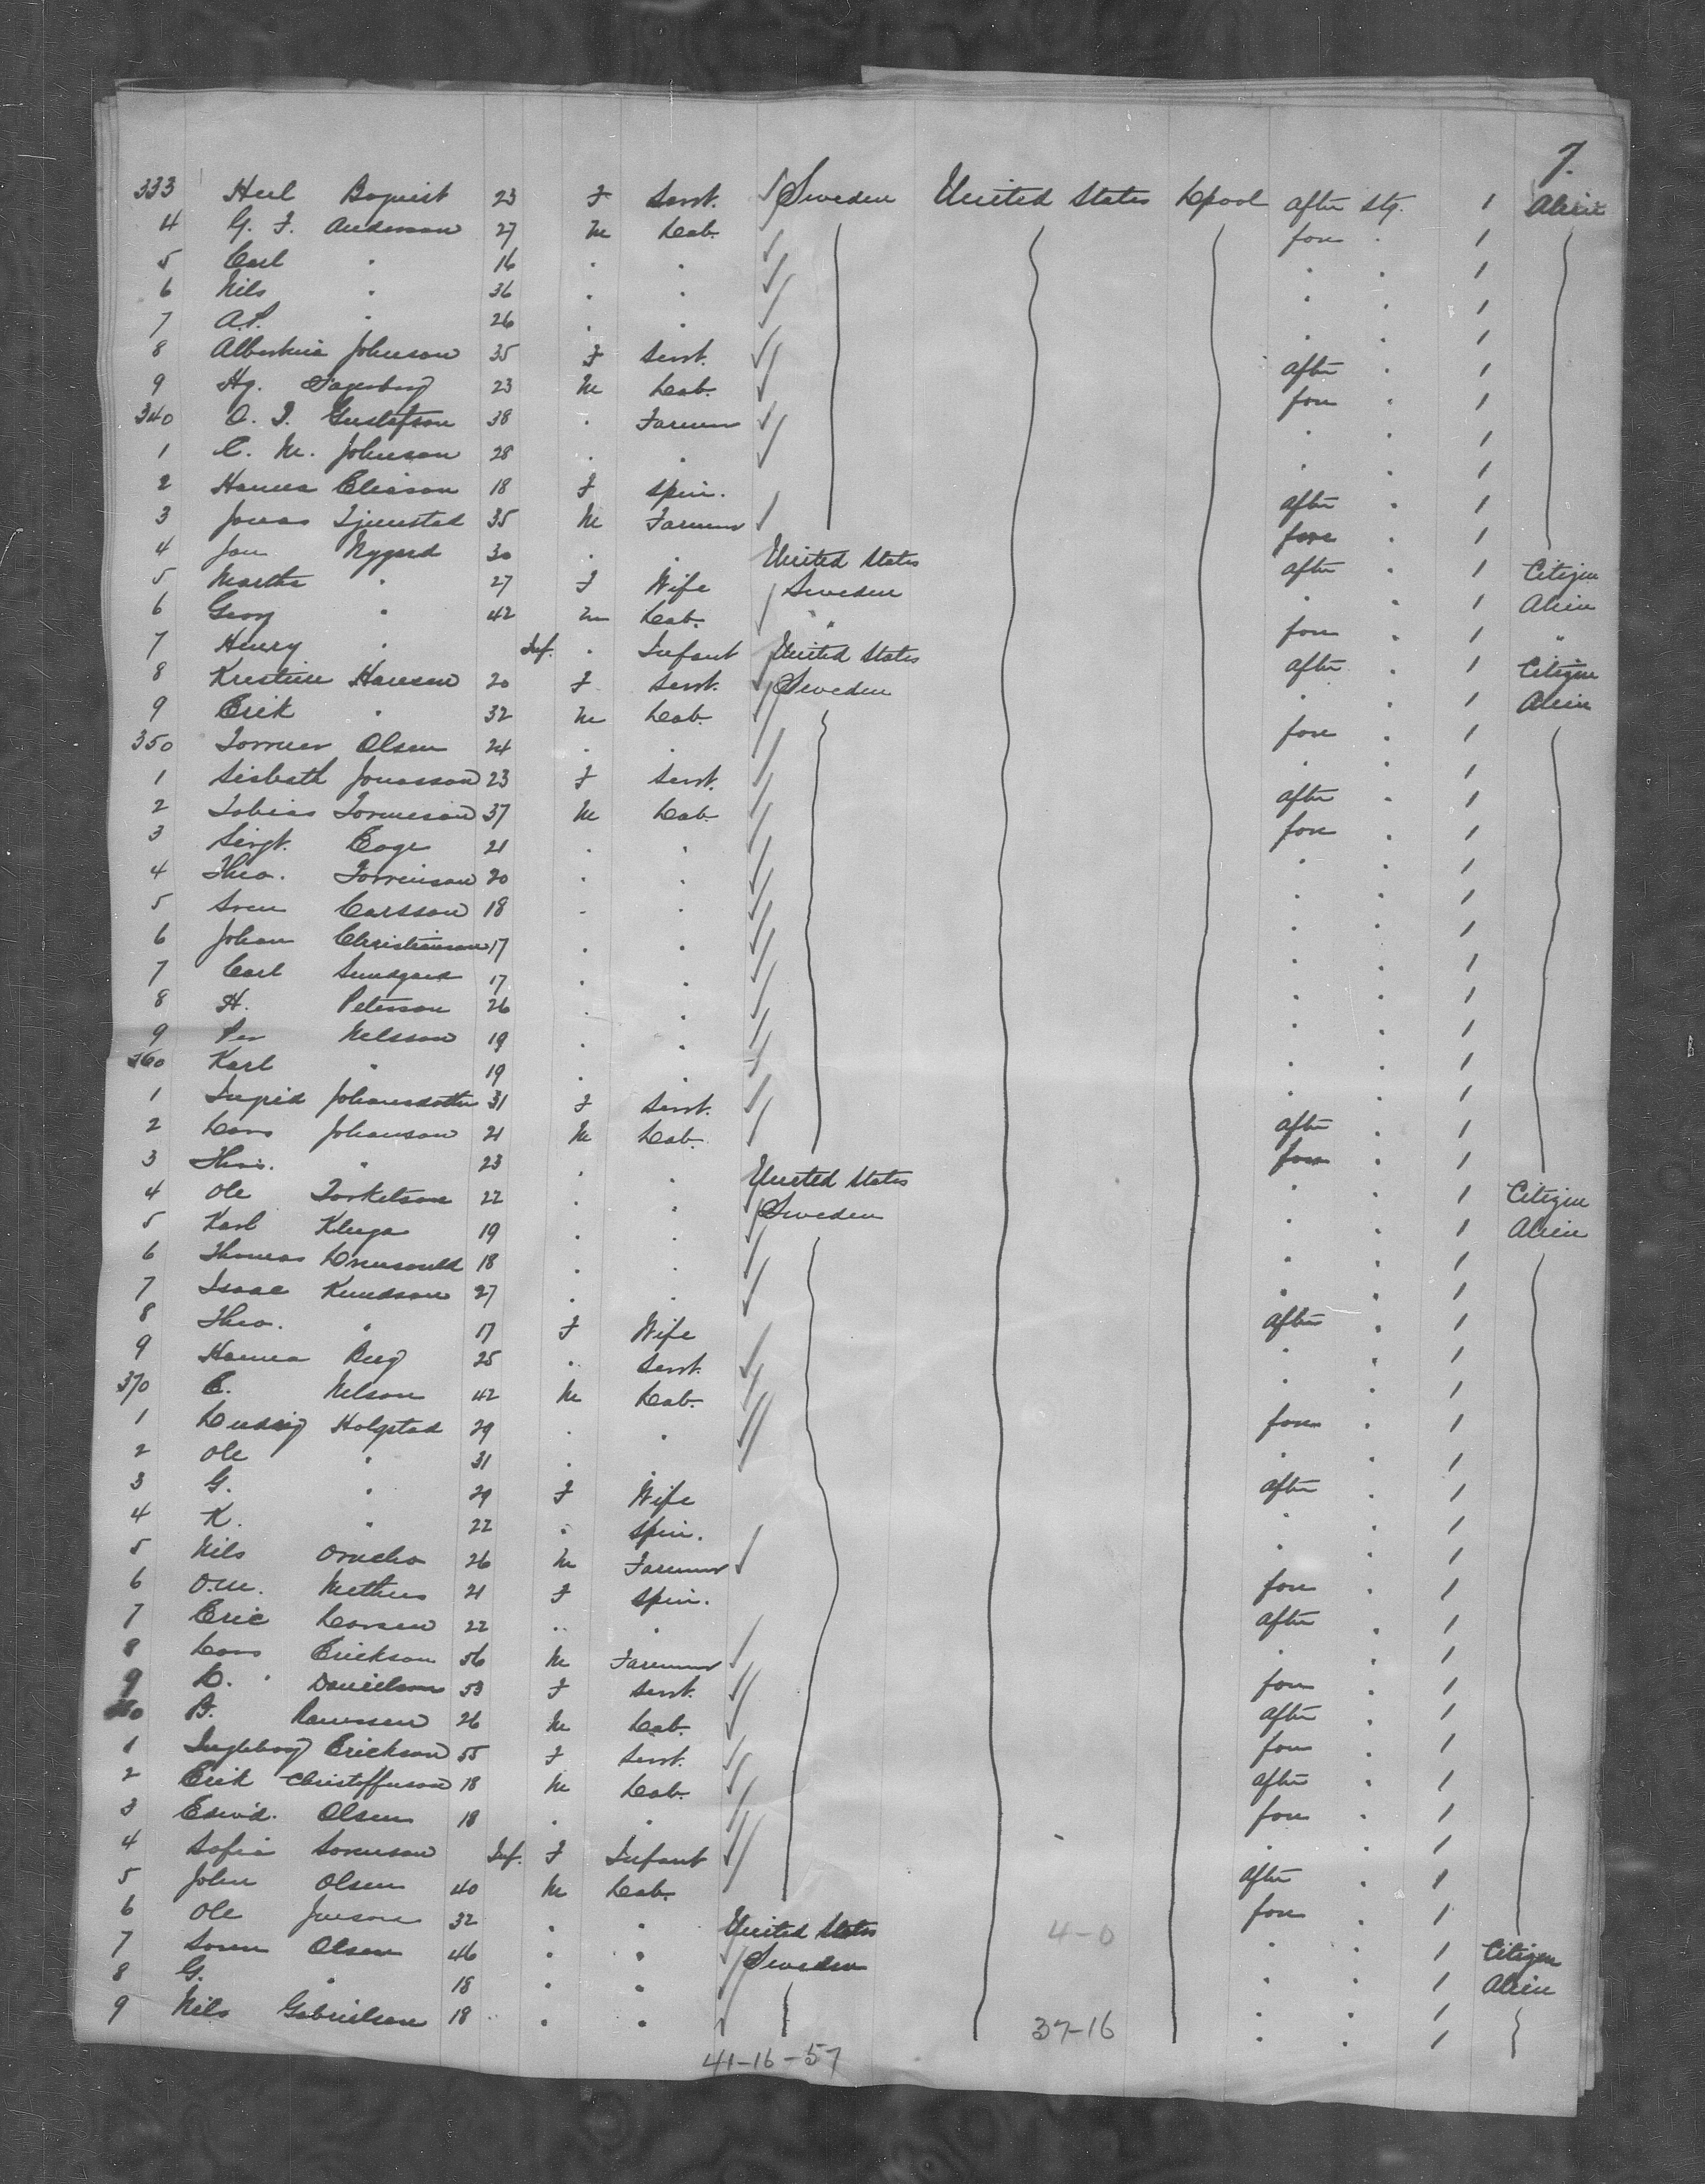 7.
333 Boquist 23 F Servt. Sweden United States Lpool after stg. 1 Alien
4 G. F. Anderson 27 M Lab. fore . 1
5 Carl " 16 . . . . 1
6 Nils " 36 . . . . 1
7 A.P. " 26 . . . . 1
8 Albertina Johnson 35 F Servt. after . 1
9 Hg. 23 M Lab. fore . 1
340 Gustafson 38 . Farmer . . 1
1 C. M. Johnson 28 . . . . 1
2 Hanna Eliason 18 F Spin. after . 1
3 Jonas 35 M Farmer fore . 1
4 Jon Nygard 30 . . United States after . 1 Citizen
5 Martha " 27 F Wife Sweden . . 1 Alien
6 Georg " 42 M Lab. " fore . 1 "
7 Henry " Inf. . Infant United States after . 1 Citizen
8 Kristine Hansen 20 F Servt. Sweden . . 1 Alien
9 Erik " 32 M Lab. fore . 1
350 Olsen 24 . . . . 1
1 Sisbeth Jonasson 23 F Servt. after . 1
2 Tobias 37 M Lab. fore . 1
3 21 . . . . 1
4 Theo. 20 . . . . 1
5 Sven Carsson 18 . . . . 1
6 Johan Christianson 17 . . . . 1
7 Carl Sundgard 17 . . . . 1
8 H. Peterson 26 . . . . 1
9 Per Nelsson 19 . . . . 1
360 Karl " 19 . . . . 1
1 Ingrid Johansdotter 31 F Servt. after . 1
2 Lars Johanson 21 M Lab. fore . 1
3 " 23 . . United States . . 1 Citizen
4 Ole Torkelson 22 . . Sweden . . 1 Alien
5 Karl 19 . . . . 1
6 Thomas 18 . . . . 1
7 Isaac Knudson 27 . . . . 1
8 Theo. " 17 F Wife after . 1
9 Hanna Berg 25 . Servt. . . 1
370 Nelson 42 M Lab. fore . 1
1 Ludvig Holgstad 29 . . . . 1
2 Ole " 31 . . . . 1
3 G. " 29 F Wife after . 1
4 K. " 22 . Spin. . . 1
5 Nils 26 M Farmer fore . 1
6 O.M. 21 F Spin. after . 1
7 Eric Larsen 22 .. . . . 1
8 Lars Erickson 56 M Farmer fore . 1
9 Danielson 53 F Servt. after . 1
380 26 M Lab. fore . 1
1 Ingleborg Erickson 55 F Servt. after . 1
2 Erik Christofferson 18 M Lab. fore . 1
3 Edwd. Olsen 18 . . . . 1
4 Sofia Sorenson Inf. F Infant after . 1
5 John Olsen 40 M Lab. fore . 1
6 Ole 32 . . United States . . 1 Citizen
7 Soren Olsen 46 . . Sweden . . 1 Alien
8 G. " 18 . . . . 1
9 Nils Gabrielson 18 . . . . 1
4-0
37-16
41-16-57